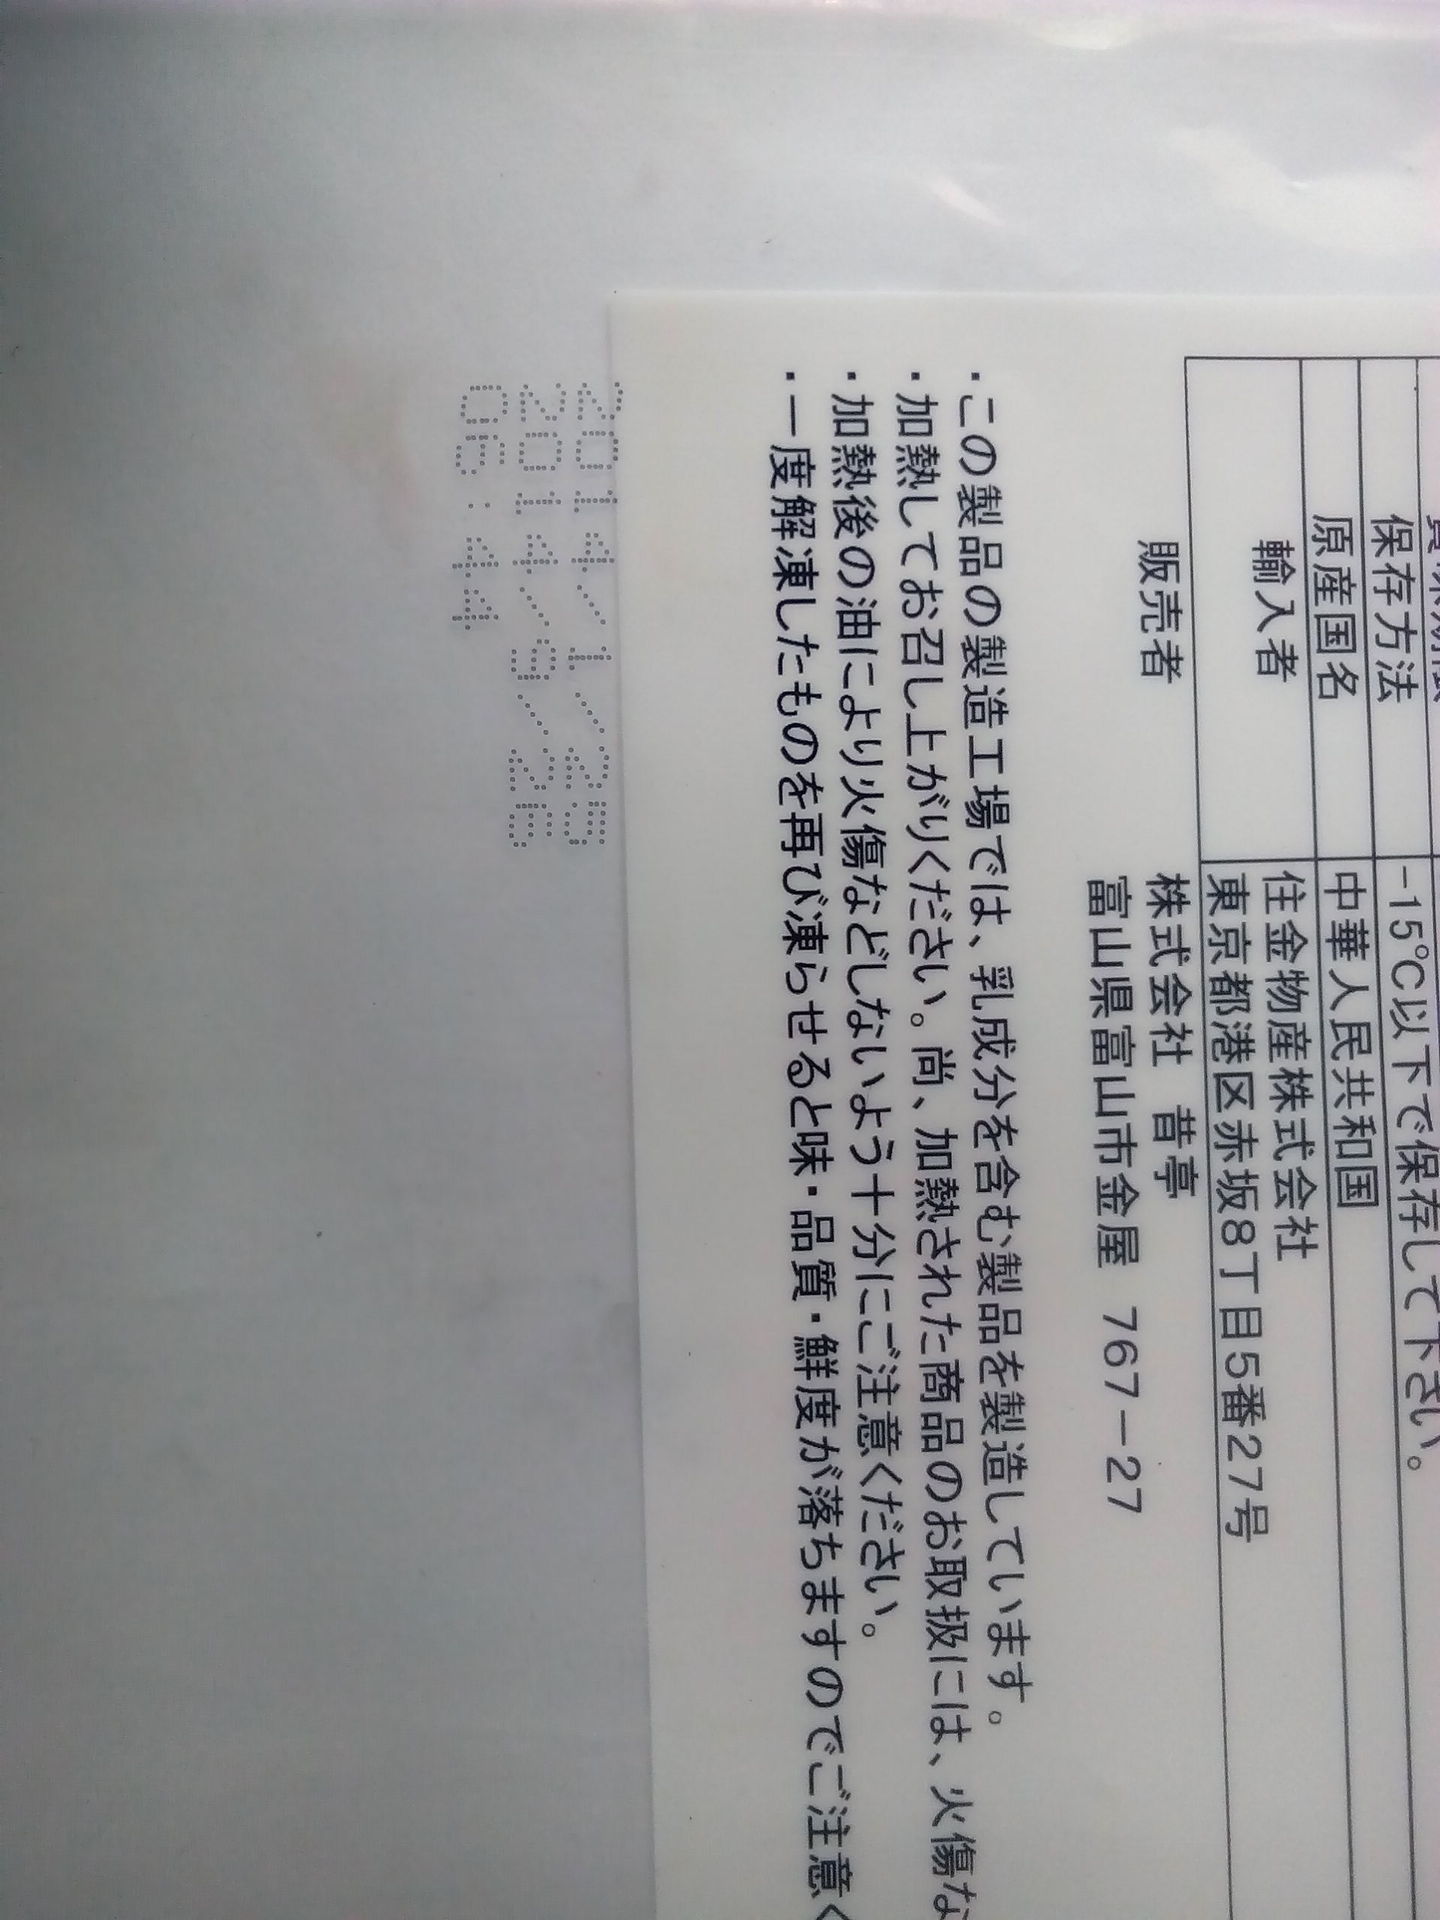 保存方法 -15℃以下で保存して下さい。
原産国名 中華人民共和国
輸入者 住金物産株式会社
東京都港区赤坂8丁目5番27号
販売者 株式会社 昔亭
富山県富山市金屋 767-27
・この製品の製造工場では、乳成分を含む製品を製造しています。
・加熱してお召し上がりください。尚、加熱された商品のお取扱には、火傷な
・加熱後の油により火傷などしないよう十分にご注意ください。
・一度解凍したものを再び凍らせると味・品質・鮮度が落ちますのでご注意く